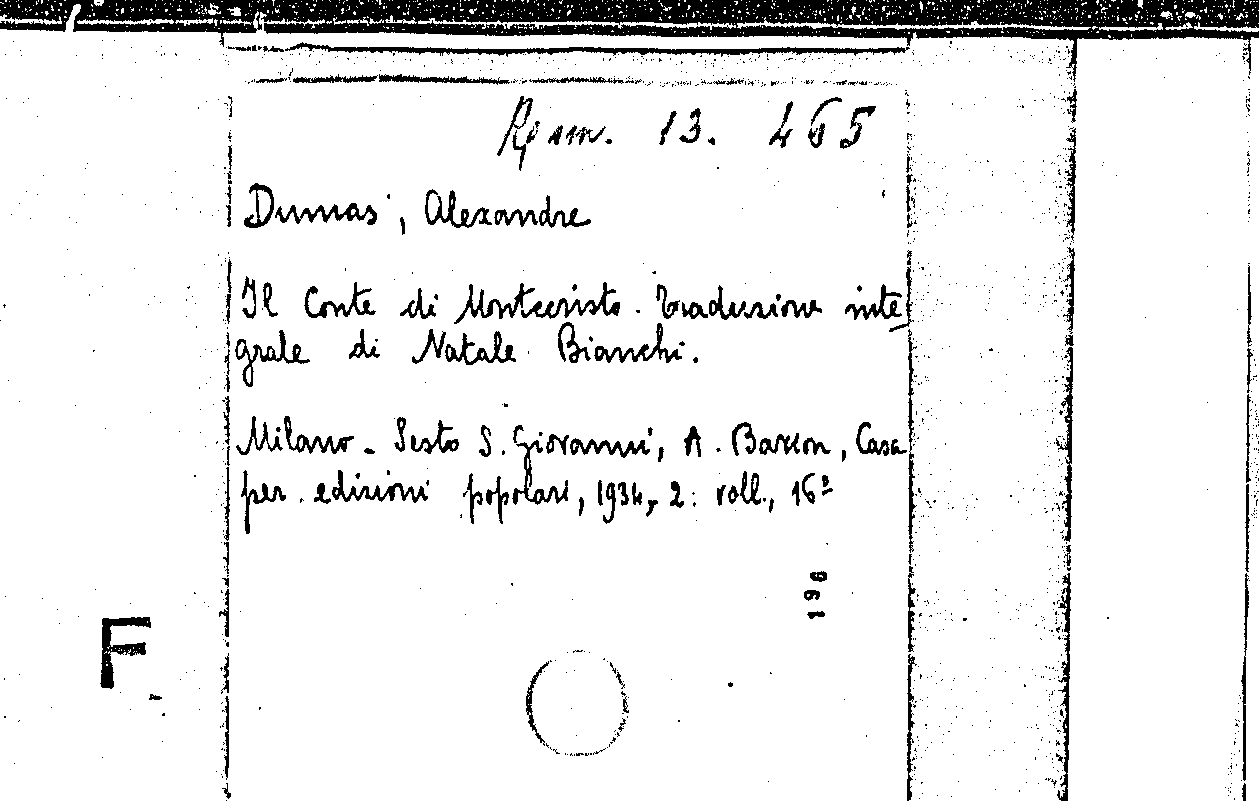 13. 465
Dumas, Alexandre
Il Conte di Montecristo. Traduzione inte
grale di Natale Bianchi.
Milano - Sesto S. Giovanni, A. Barion, Casa
per edizioni popolari, 1934, 2 voll., 16º
196
F